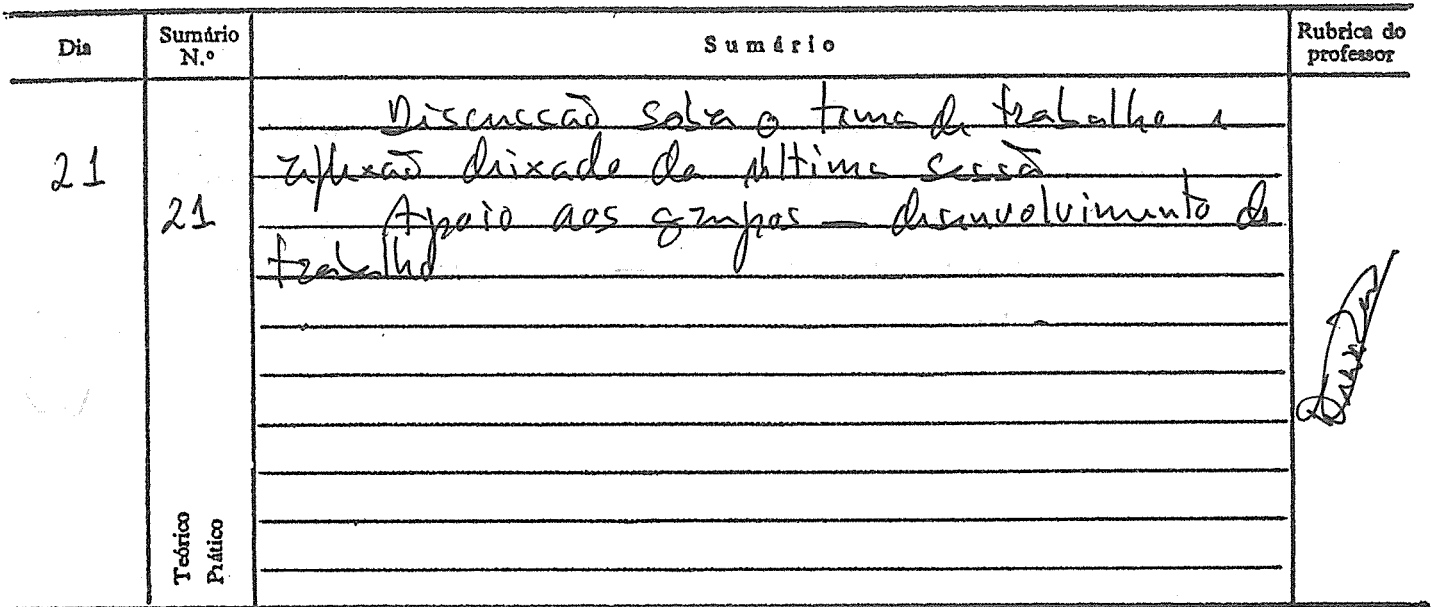 Dia
Sumário N.º
Sumário
Rubrica do professor
21
21
Discussão sobre o tema de trabalho e
reflexão deixado da última sessão
Apoio aos grupos — desenvolvimento do
trabalho
Teórico
Prático